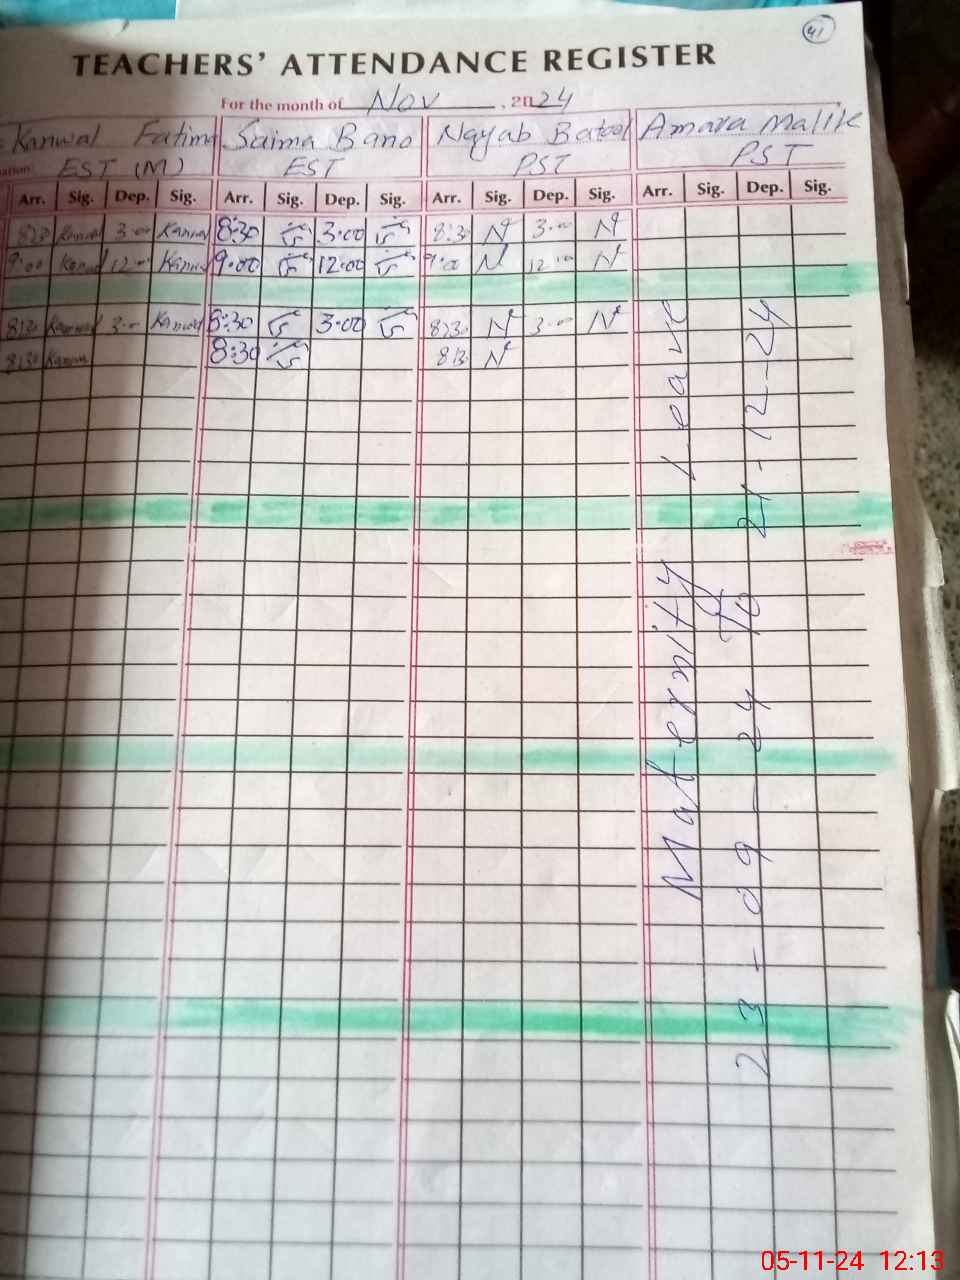 41
TEACHERS' ATTENDANCE REGISTER
For the month of Nov , 2024
Kanwal Fatima Saima Bano Nayab Batool Amara Malik
EST (M) EST PST PST
Arr. Sig. Dep. Sig. Arr. Sig. Dep. Sig. Arr. Sig. Dep. Sig. Arr. Sig. Dep. Sig.
8:30 Kanwal 3:00 Kanwal 8:30 3:00 8:30 N 3:00 N
9:00 Kanwal 12:00 Kanwal 9:00 12:00 9:00 N 12:00 N
8:30 Kanwal 3:00 Kanwal 8:30 3:00 8:30 N 3:00 N
8:30 Kanwal 8:30 8:30 N
Maternity Leave
23-09-24 To 21-12-24
05-11-24 12:13